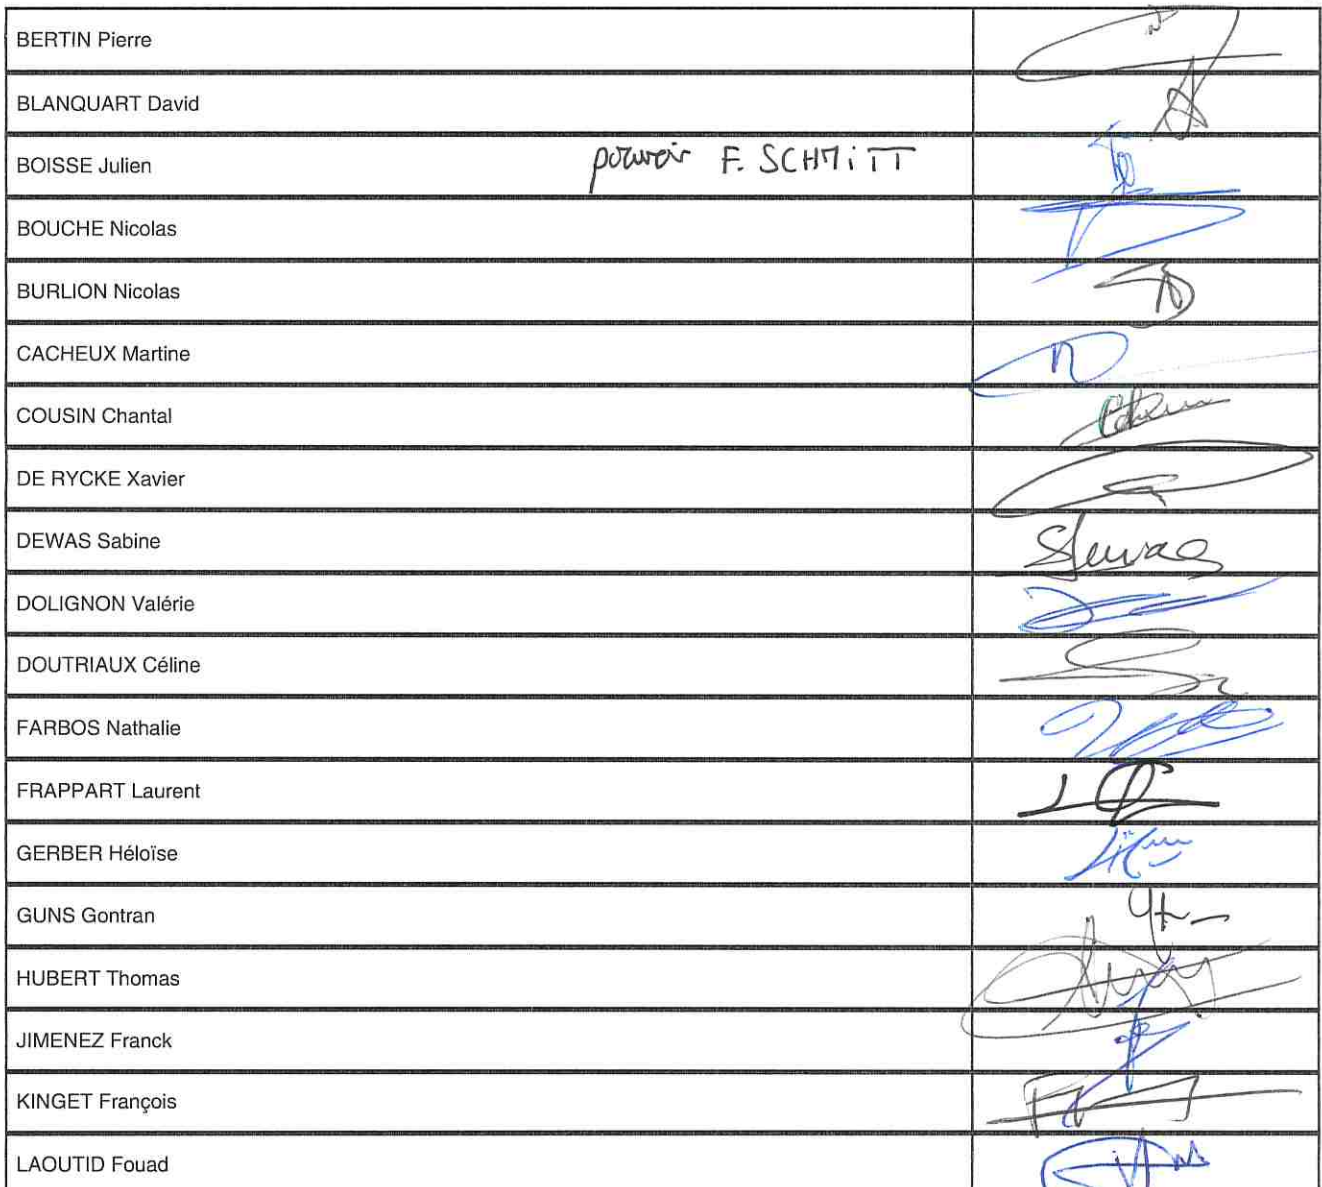 BERTIN Pierre
BLANQUART David
BOISSE Julien pouvoir F. SCHMiTT
BOUCHE Nicolas
BURLION Nicolas
CACHEUX Martine
COUSIN Chantal
DE RYCKE Xavier
DEWAS Sabine
DOLIGNON Valérie
DOUTRIAUX Céline
FARBOS Nathalie
FRAPPART Laurent
GERBER Héloïse
GUNS Gontran
HUBERT Thomas
JIMENEZ Franck
KINGET François
LAOUTID Fouad